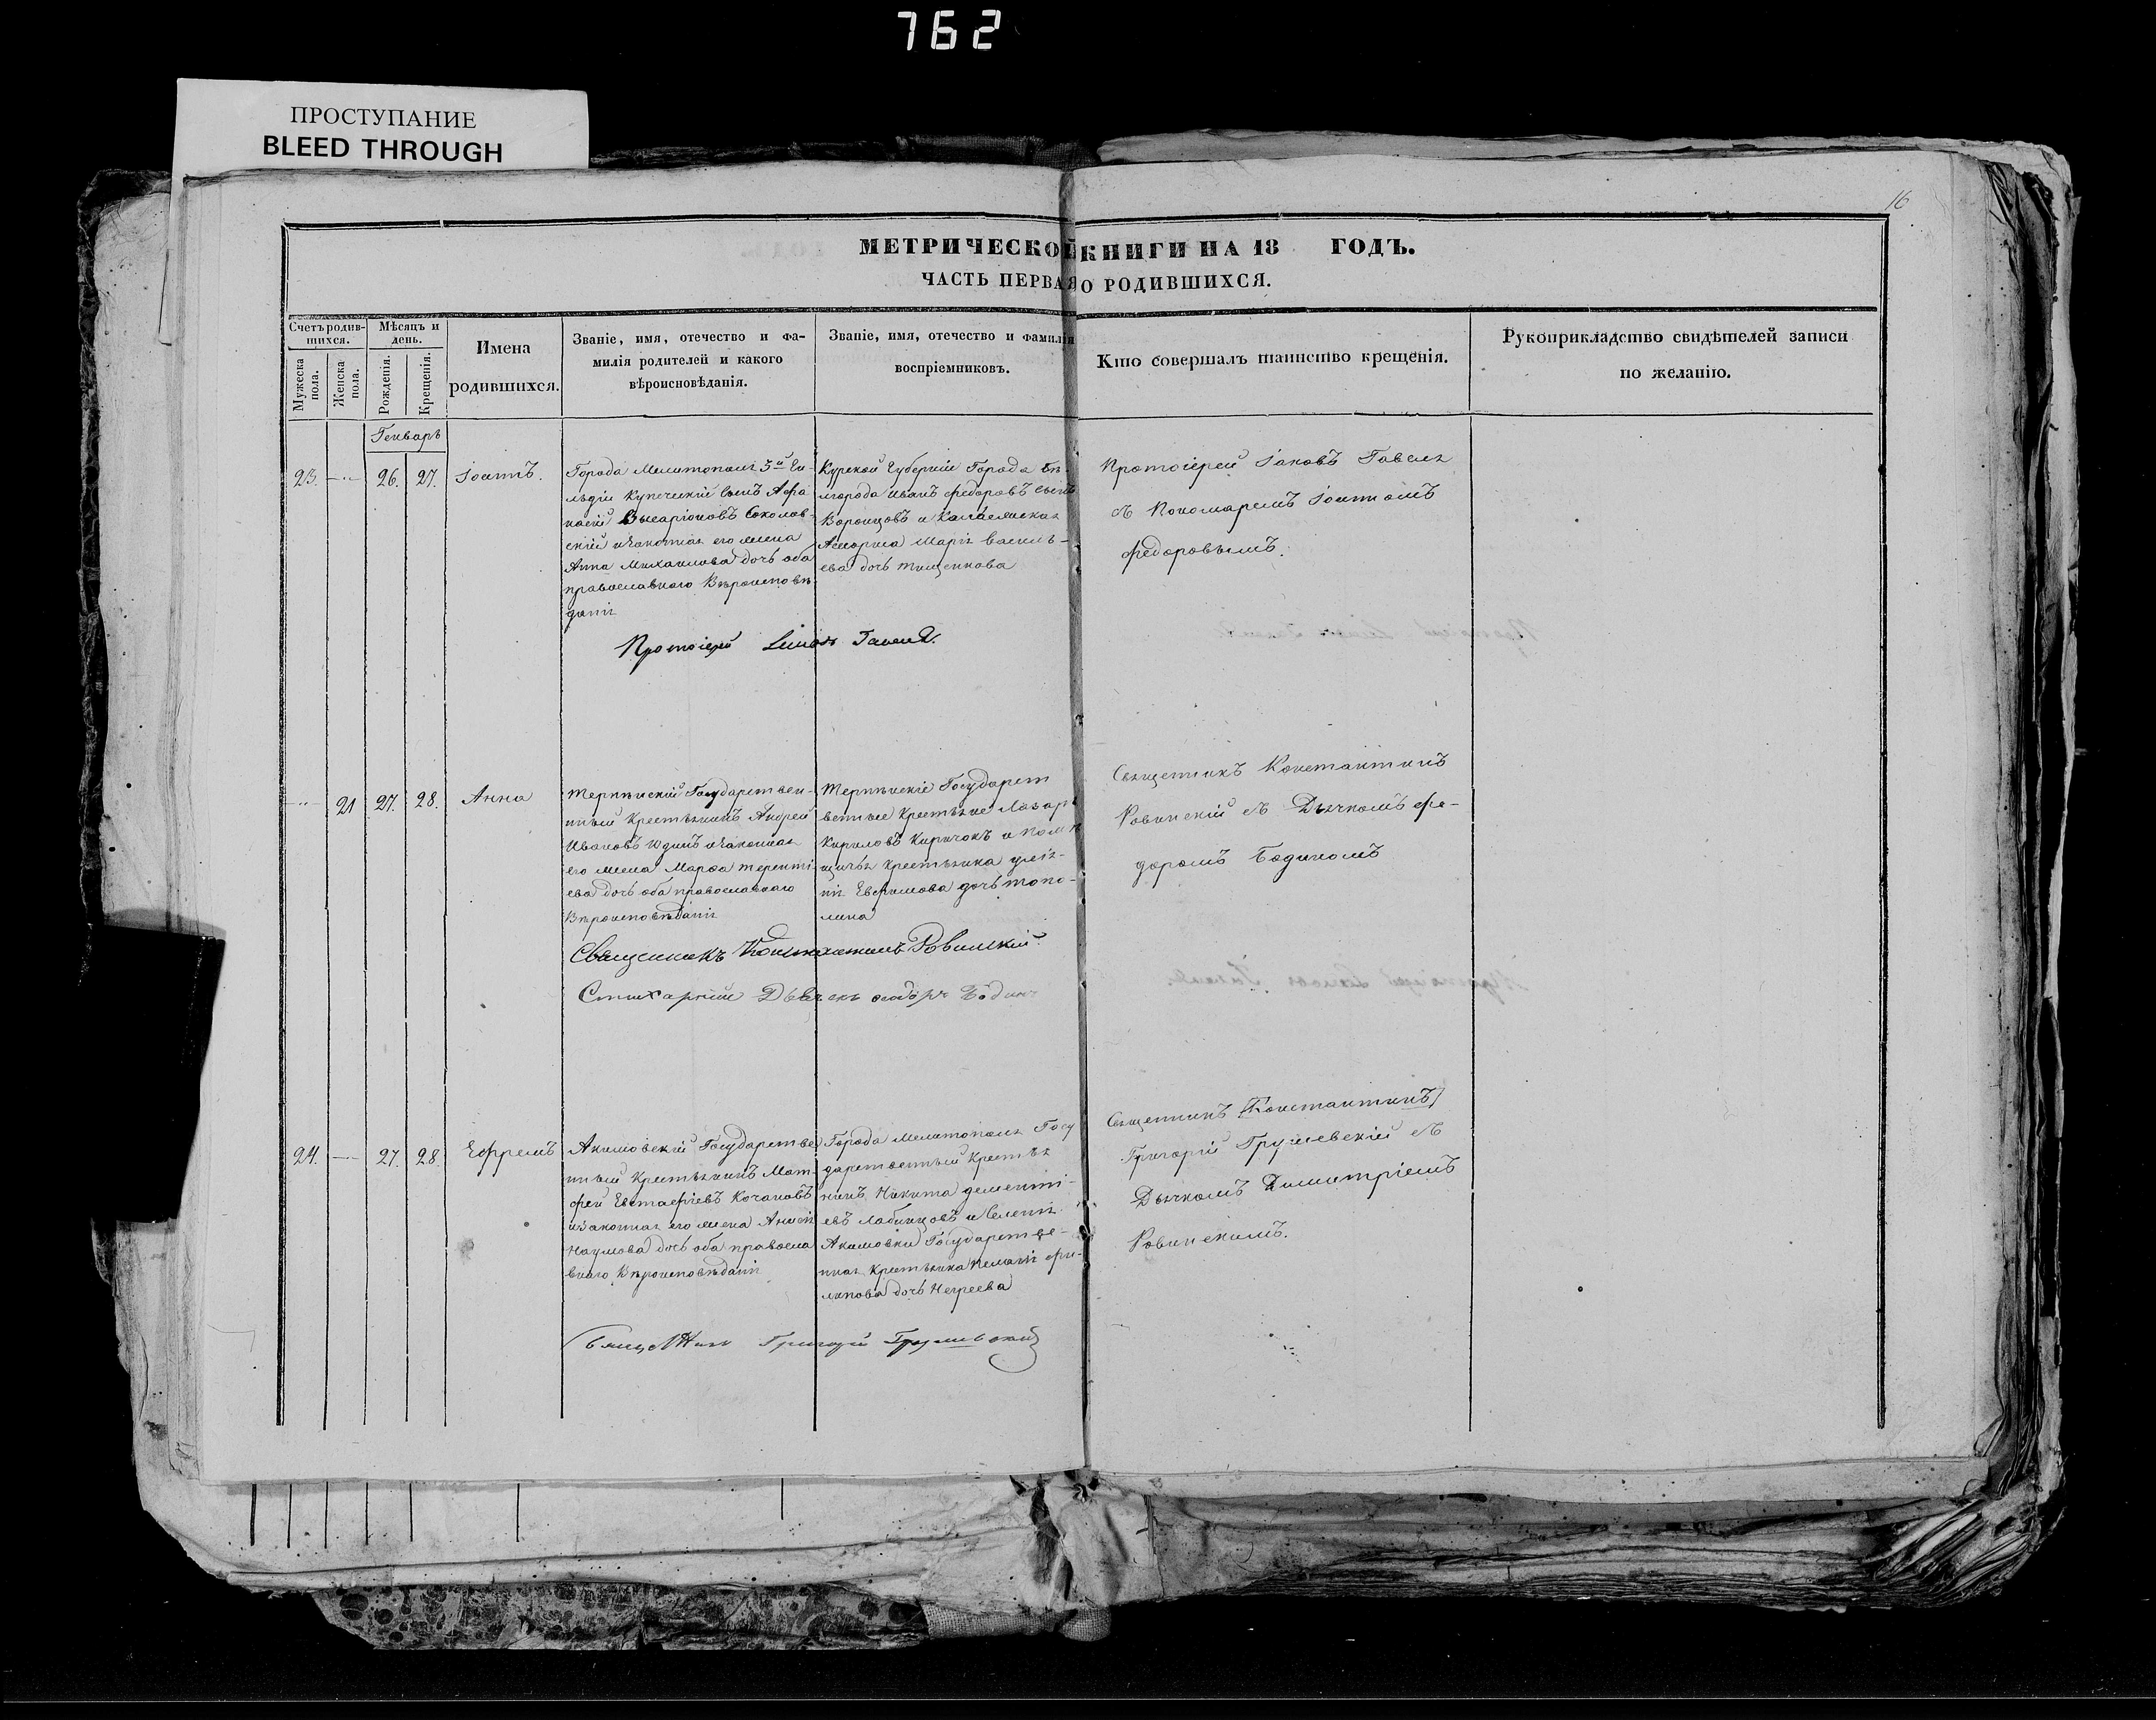 762
ПРОСТУПАНИЕ
BLEED THROUGH
16
МЕТРИЧЕСКОЙ КНИГИ НА 18 ГОДЪ.
ЧАСТЬ ПЕРВАЯ О РОДИВШИХСЯ.
Счетъ родив-
шихся.
Мужеска
пола.
Женска
пола.
Мѣсяцъ и
день.
Рожденія.
Крещенія.
Имена
родившихся.
Званіе, имя, отечество и фа-
милія родителей и какого
вѣроисповѣданія.
Званіе, имя, отечество и фамилія
воспріемниковъ.
Кто совершалъ таинство крещенія.
Рукоприкладство свидѣтелей записи
по желанію.
Генварь
23. 26. 27. Іоаннъ.
Города Мелитополя 3й Ги-
льдіи Купеческій сынъ Афа
насій Висаріоновъ Соколов-
скій и законная его жена
Анна Михаилова дочь оба
православнаго Вѣроисповѣ
данія
Курской Губерніи Города Бѣ-
лгорода Иванъ Федоровъ сынъ
Воронцовъ и
Марія Василь-
ева дочь Тищенкова
Протоіерей Іаковъ Гавель
съ Пономаремъ Іоанномъ
Федоровымъ.
Протоіерей
21 27. 28. Анна
Терпѣнскій Государствен-
ный Крестьянинъ Андрей
Ивановъ Юдинъ и законная
его жена Марѳа Теренті-
ева дочь оба православнаго
Вѣроисповѣданія
Терпѣнскіе Государст
венные Крестьяне Лазарь
Кириловъ Киричокъ и Помѣ
щичья крестьянка Улія-
нія Евфимова дочь Топо-
лина
Священникъ Константинъ
Ровинскій съ Дьячкомъ Фе-
доромъ Бодиномъ
Священникъ Константинъ Ровинскій
Стихарный Дьячекъ
24. 27. 28 Ефремъ
Акимовскій Государстве
нный Крестьянинъ Мат-
фей Евстафіевъ Качановъ
и законная его жена Анисія
Наумова дочь оба правосла
внаго Вѣроисповѣданія
Города Мелитополя Госу
дарственный Крестья
нинъ Никита Дементі-
евъ Лабинцовъ и Селенія
Акимовки Государстве-
нная Крестьянка Пелагія Фи-
липова дочь Негреева
Священникъ (Константинъ)
Григорій Грушевскій съ
Дьячкомъ Димитріемъ
Ровинскимъ.
Священникъ Григорій Грушевскій